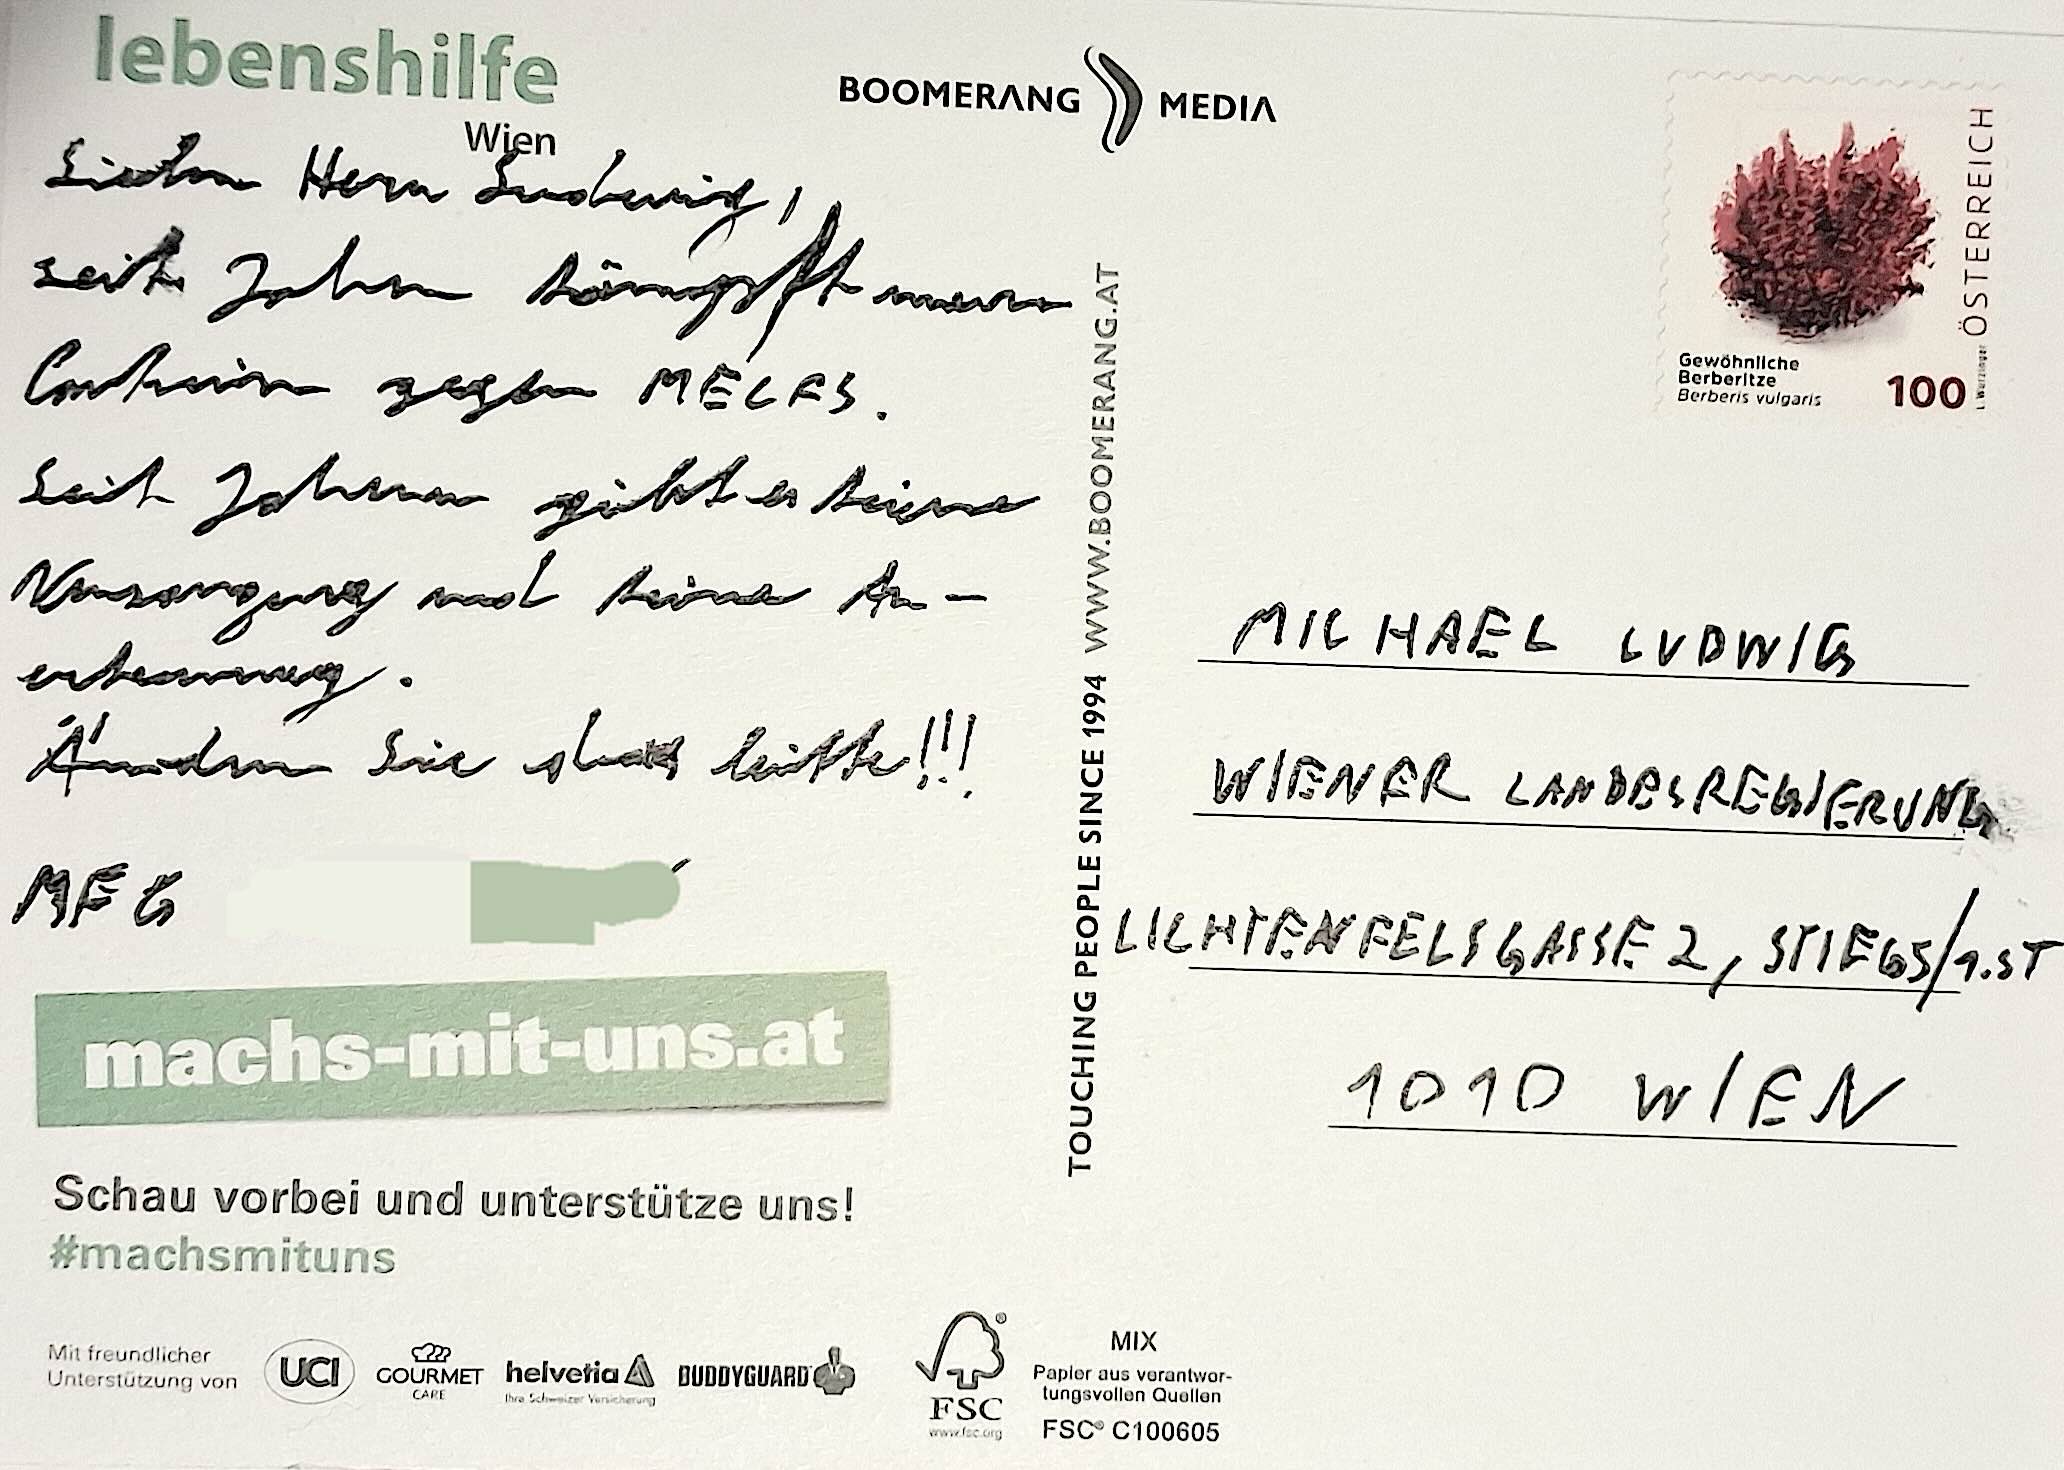 lebenshilfe
Wien
Herrn Ludwig,
seit Jahren kämpft meine
Cousine gegen ME/CFS.
Seit Jahren gibt es keine
Versorgung und keine An-
erkennung.
Ändern Sie das bitte!!!
MFG
machs-mit-uns.at
Schau vorbei und unterstütze uns!
#machsmituns
Mit freundlicher
Unterstützung von
UCI
GOURMET
CARE
helvetia
Ihre Schweizer Versicherung
BUDDYGUARD
FSC
www.fsc.org
MIX
Papier aus verantwor-
tungsvollen Quellen
FSC® C100605
BOOMERANG MEDIA
TOUCHING PEOPLE SINCE 1994 WWW.BOOMERANG.AT
ÖSTERREICH
Gewöhnliche
Berberitze
Berberis vulgaris
100
I. Wurzinger
MICHAEL LUDWIG
WIENER LANDESREGIERUNG
LICHTENFELSGASSE 2, STIEG5/1.ST
1010 WIEN